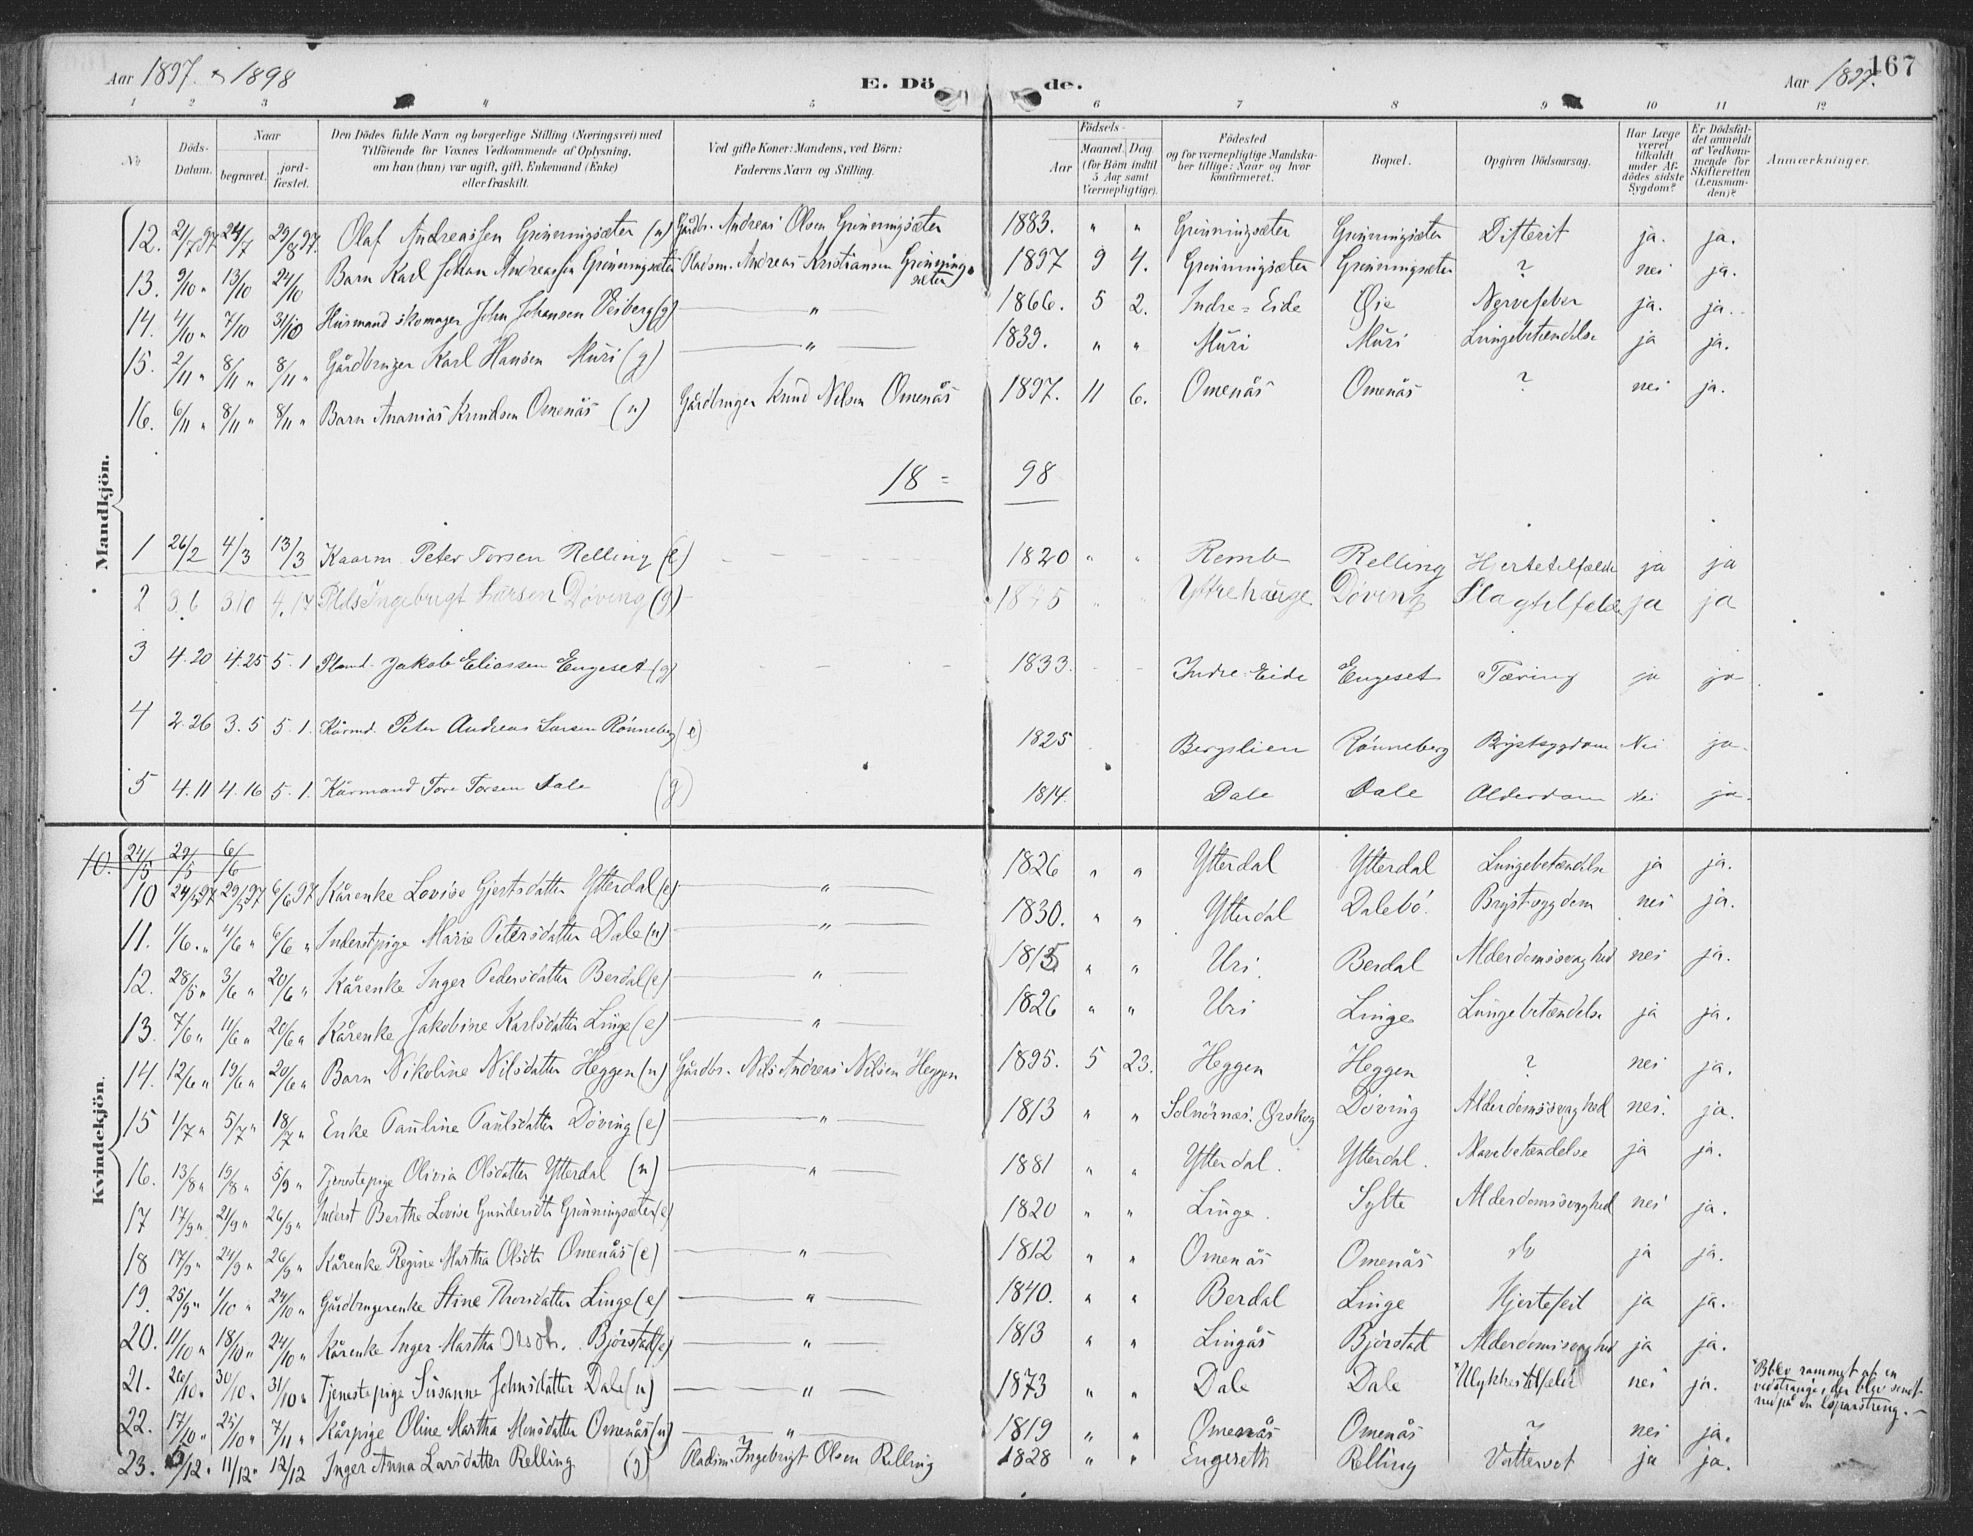 Aar 1897. & 1898 E. Dö de. Aar 1897. 167
1 2 3 4 5 6 7 8 9 10 11 12
No
Döds-Datum.
Naar
begravet.
jord-fæstet.
Den Dödes fulde Navn og borgerlige Stilling (Næringsvei) med
Tilföiende for Voxnes Vedkommende af Oplysning,
om han (hun) var ugift, gift, Enkemand (Enke)
eller fraskilt.
Ved gifte Koner: Mandens, ved Börn:
Faderens Navn og Stilling.
Födsels-
Aar
Maaned. Dag.
(for Börn indtil
5 Aar samt
Værnepligtige).
Födested
og for værnepligtige Mandska-
ber tillige: Naar og hvor
konfirmeret.
Bopæl.
Opgiven Dödsaarsag.
Har Læge
været
tilkaldt
under Af-
dödes sidste
Sygdom?
Er Dödsfal-
det anmeldt
af Vedkom-
mende for
Skifteretten
(Lensman-
den)?
Anmærkninger.
Mandkjön.
12. 2/7 97 24/7 29/8 97. Olaf Andreassen Grönningsæter (u) Gårdbr. Andreas Olsen Grönningsæter 1883. " " Grönningsæter Grönningsæter Difterit ja. ja.
13. 9/10 " 13/10 24/10 Barn Karl Johan Andreassen Grönningsæter Pladsm. Andreas Kristiansen Grönningsæter 1897 9 4. Grönningsæter Grönningsæter ? nei ja.
14. 4/10 " 7/10 31/10 Husmand skomager John Johansen Veiberg (g) " 1866. 5 2. Indre-Eide Øie Nervefeber ja. ja.
15. 2/11 " 8/11 " 8/11 " Gårdbruger Karl Hansen Muri (g) " 1839. " " Muri Muri Lungebetændelse ja ja.
16. 6/11 " 8/11 " 8/11 " Barn Ananias Knudsen Omenås (u) Gårdbruger Knud Nilsen Omenås 1897. 11 6. Omenås Omenås ? nei ja.
18 = 98
1 26/2 4/3 13/3 Kaarm. Peter Torsen Relling (e) 1820 " " Remb Relling Hjertetilfælde ja ja
2 3.6 3.10 4.17 Plds Ingebrigt Larsen Döving (g) 1845 " " Yttrehauge Döving Slagtilfælde ja ja
3 4.20 4.25 5.1 Pland. Jakob Eliassen Engeset (g) 1833. Indre-Eide Engeset Tæring ja ja
4 2.26 3.5 5.1. Kårmd. Peter Andreas Larsen Rönneberg (e) 1825 Bergslien Rönneberg Brystsygdom Nei ja.
5 4.11 4.16 5.1. Kårmand Tore Torsen Dale (g) 1814. Dale Dale Alderdom Nei ja.
Kvindekjön.
10. 24/5 29/5 6/6
10 24/5 97 29/5 97 6/6 97 Kårenke Lovise Gjertsdatter Ytterdal (e) " 1826 " " Ytterdal Ytterdal Lungebetændelse ja ja.
11. 1/6. " 4/6 " 6/6 " Inderstpige Marie Petersdatter Dale (u) " 1830. " " Ytterdal Dalebö. Brystsygdom nei ja.
12. 28/5 " 3/6 " 20/6 " Kårenke Inger Pedersdatter Berdal (e) " 1815 " " Uri. Berdal Alderdomssvaghed nei ja.
13. 7/6 " 11/6 " 20/6 " Kårenke Jakobine Karlsdatter Linge (e) " 1826 " " Uri Linge Lungebetændelse ja ja.
14. 12/6 " 19/6 " 20/6 " Barn Nikoline Nilsdatter Heggen (u) Gårdbr. Nils Andreas Nilsen Heggen 1895. 5 23. Heggen Heggen ? nei ja.
15 1/7 " 5/7 " 18/7 " Enke Pauline Paulsdatter Döving (e) " 1813 " " Solnörnæs. Ørskog Döving Alderdomssvaghed nei. ja.
16. 13/8 " 19/8 " 5/9 " Tjenestepige Olivia Olsdatter Ytterdal (u) " 1881 " " Ytterdal. Ytterdal. Mavebetændelse ja ja.
17 17/9 " 21/9 " 26/9 " Inderst Berthe Lovise Gundersdtr Grönningsæter (e) 1820 " " Linge. Sylte Alderdomssvaghed nei ja.
18 17/9 " 24/9 " 26/9 " Kårenke Regine Martha Olsdtr Omenås (e) " 1812 " " Omenås Omenås do ja ja.
19. 25/9 " 1/10 " 24/10 " Gårdbrugerenke Stine Thorsdatter Linge (e) " 1840. " " Berdal Linge Hjertefeil ja ja.
20. 11/10 " 18/10 " 24/10 " Kårenke Inger Martha Olsdtr. Björstad (e) " 1813 " " Lingås Björstad Alderdomssvaghed ja ja.
21. 20/10 " 30/10 " 31/10 " Tjenestepige Susanne Johnsdatter Dale (u) " 1873 " " Dale Dale "Ulykkestilfælde nei ja. "Blev rammet af en
vedstrange, der blev sendt
ned på en löpastreng.
22. 17/10 " 25/10 " 7/11 " Kårpige Oline Martha Monsdatter Omenås (u) " 1819 " " Omenås Omenås ? nei ja.
23. 5/12 " 11/12 " 12/12 Inger Anna Larsdatter Relling (g) Pladsm. Ingebrigt Olsen Relling 1828 " " Engeseth Relling Vattersot ja ja.